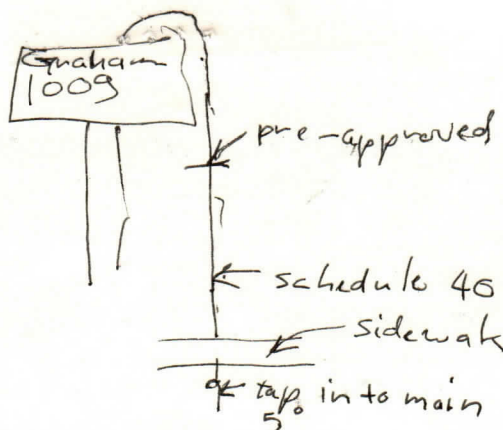 Graham
1009
pre-approved
schedule 40
sidewak
tap. in to main
5